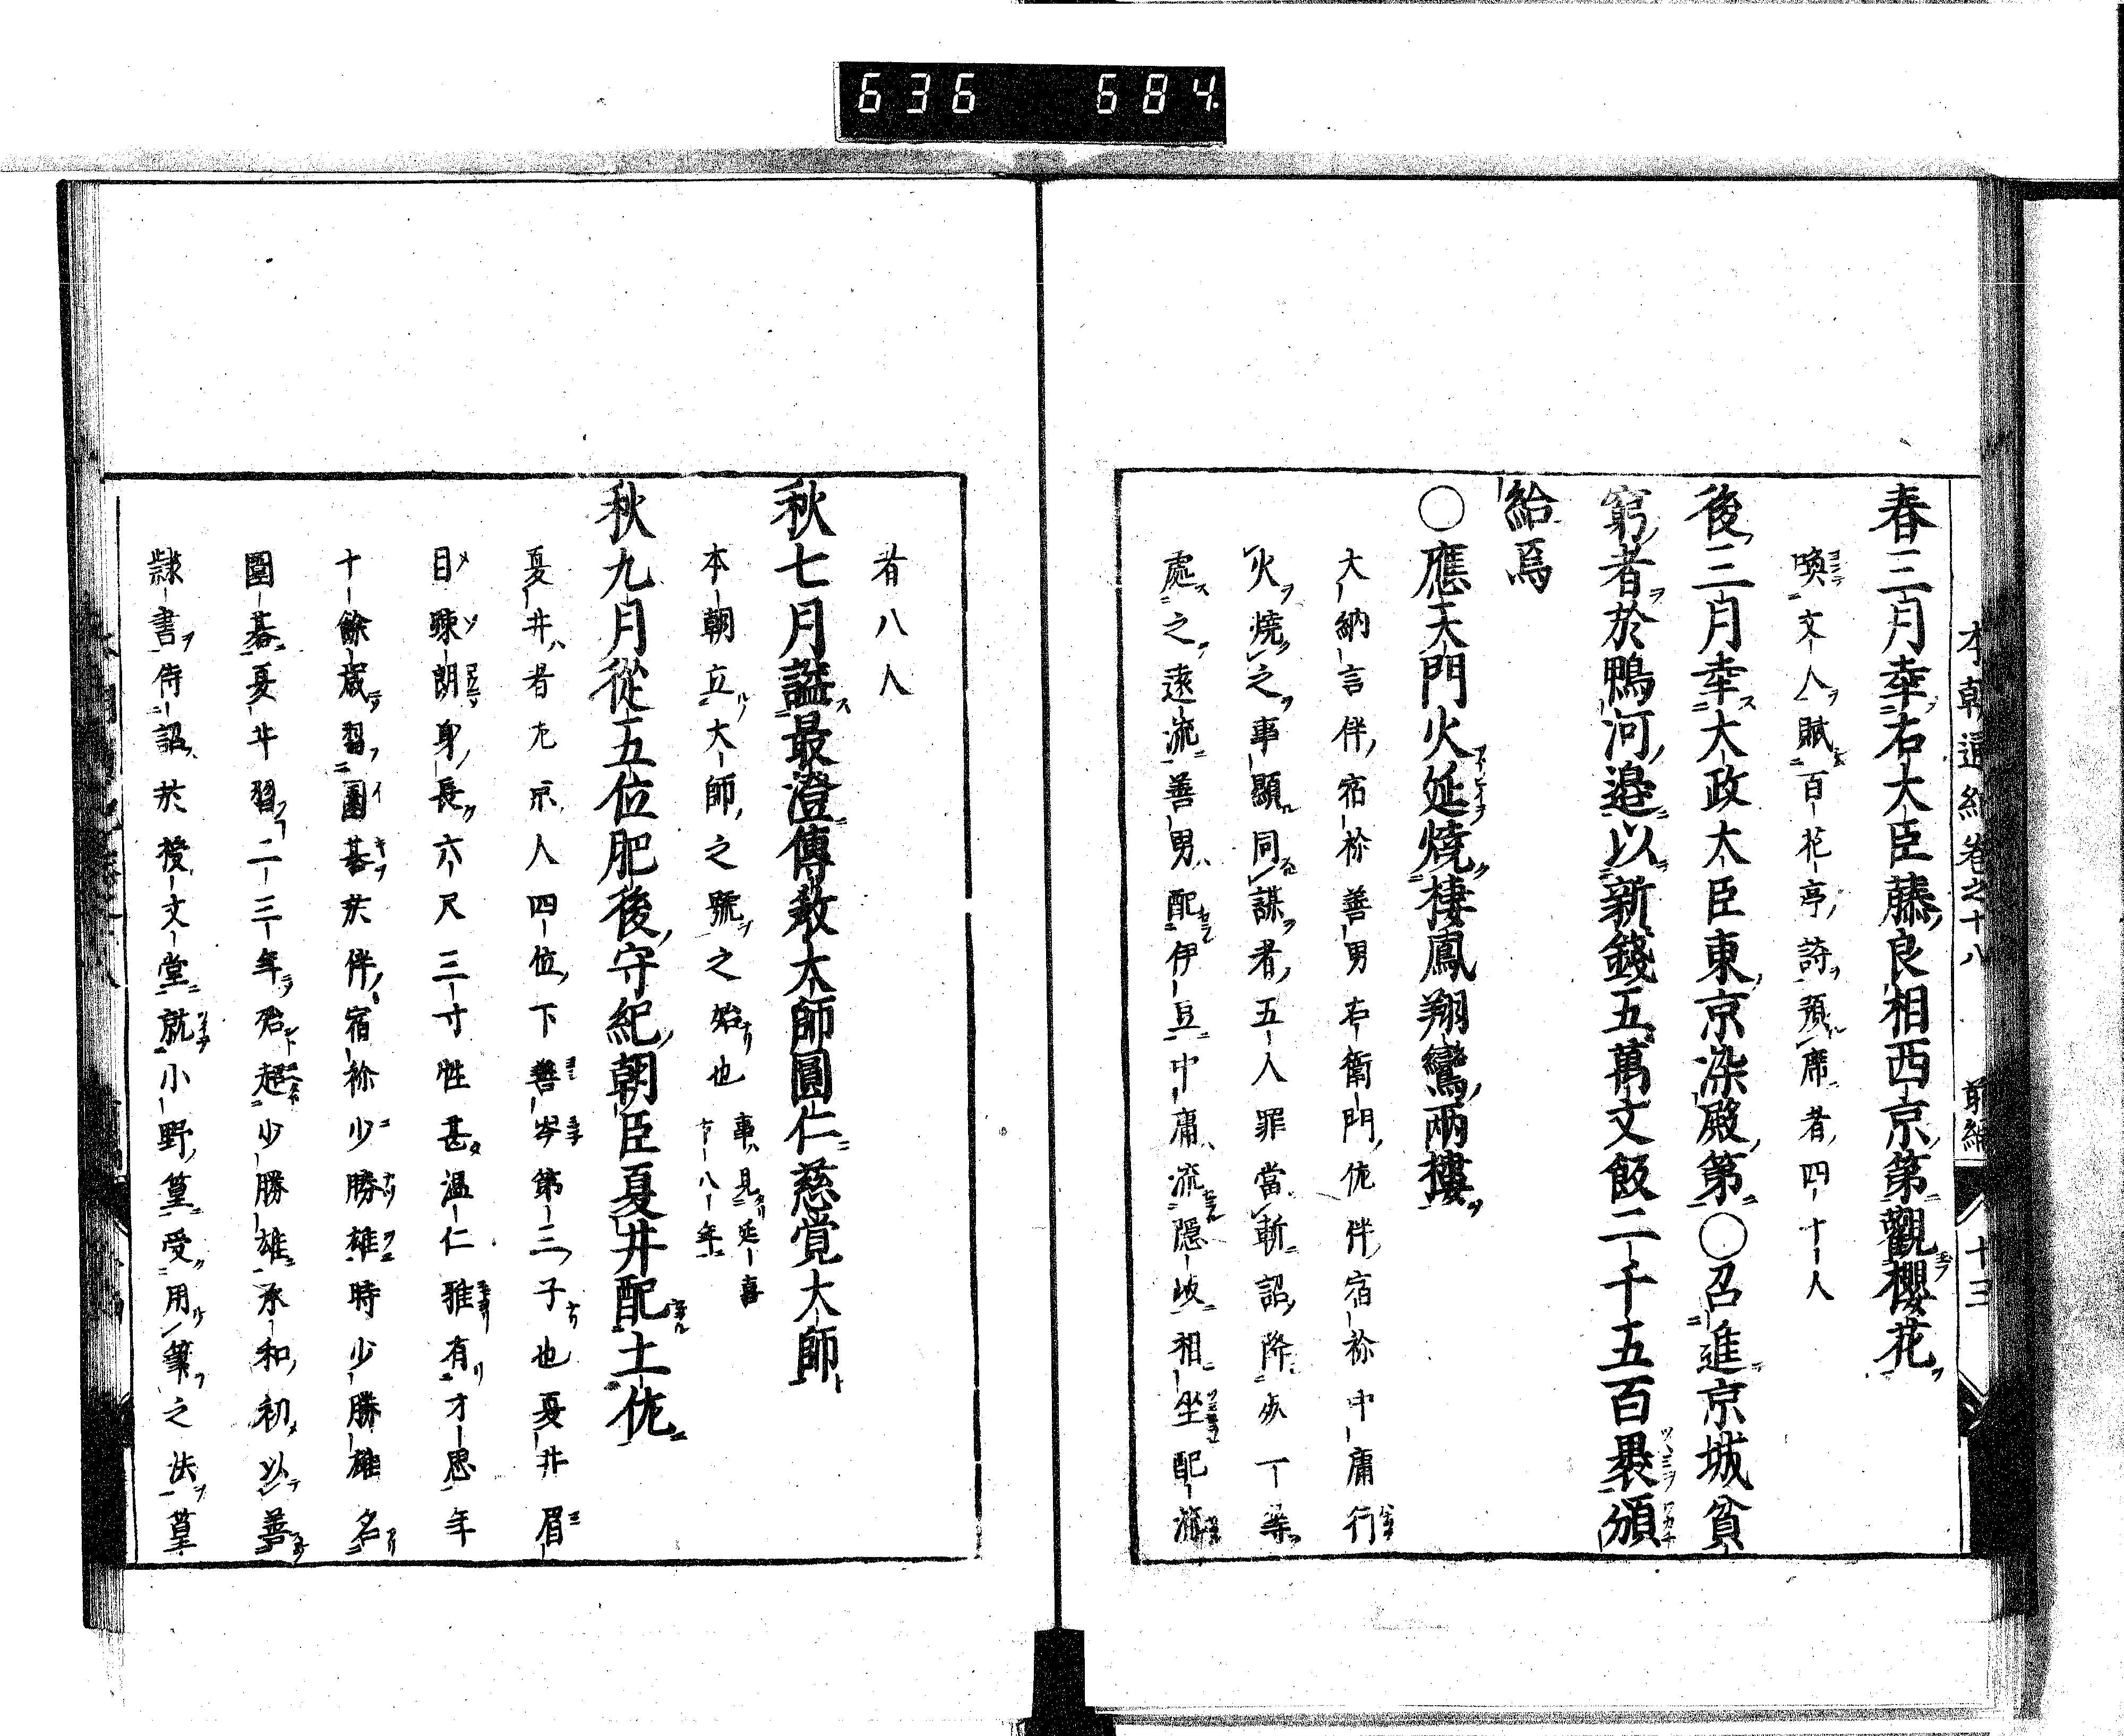 636 684
本朝通紀卷之十八 前編 十三
春三月幸右大臣藤良相西京第觀櫻花
喚文人賦百花亭詩預席者四十人
後三月幸太政大臣東京染殿第○召進京城貧
窮者於鴨河邉以新錢五萬文飯二千五百褁頒
給焉
○應天門火延燒棲鳳翔鸞兩樓
大納言伴宿祢善男右衛門佐伴宿祢中庸行
火燒之事顯同謀者五人罪當斬詔降死一等
處之遠流善男配伊豆中庸流隠岐相坐配流
者八人
秋七月謚最澄傳敎大師圓仁慈覚大師
本朝立大師之號之始也 事見延喜
十八年
秋九月從五位肥後守紀朝臣夏井配土佐
夏井者左京人四位下善岑第三子也夏井眉
目疎朗身長六尺三寸性甚温仁雅有才思年
十餘歳習圍碁於伴宿祢少勝雄時少勝雄名
圍碁夏井習二三年殆超少勝雄承和初以善
隷書侍詔於授文堂就小野篁受用筆之法篁